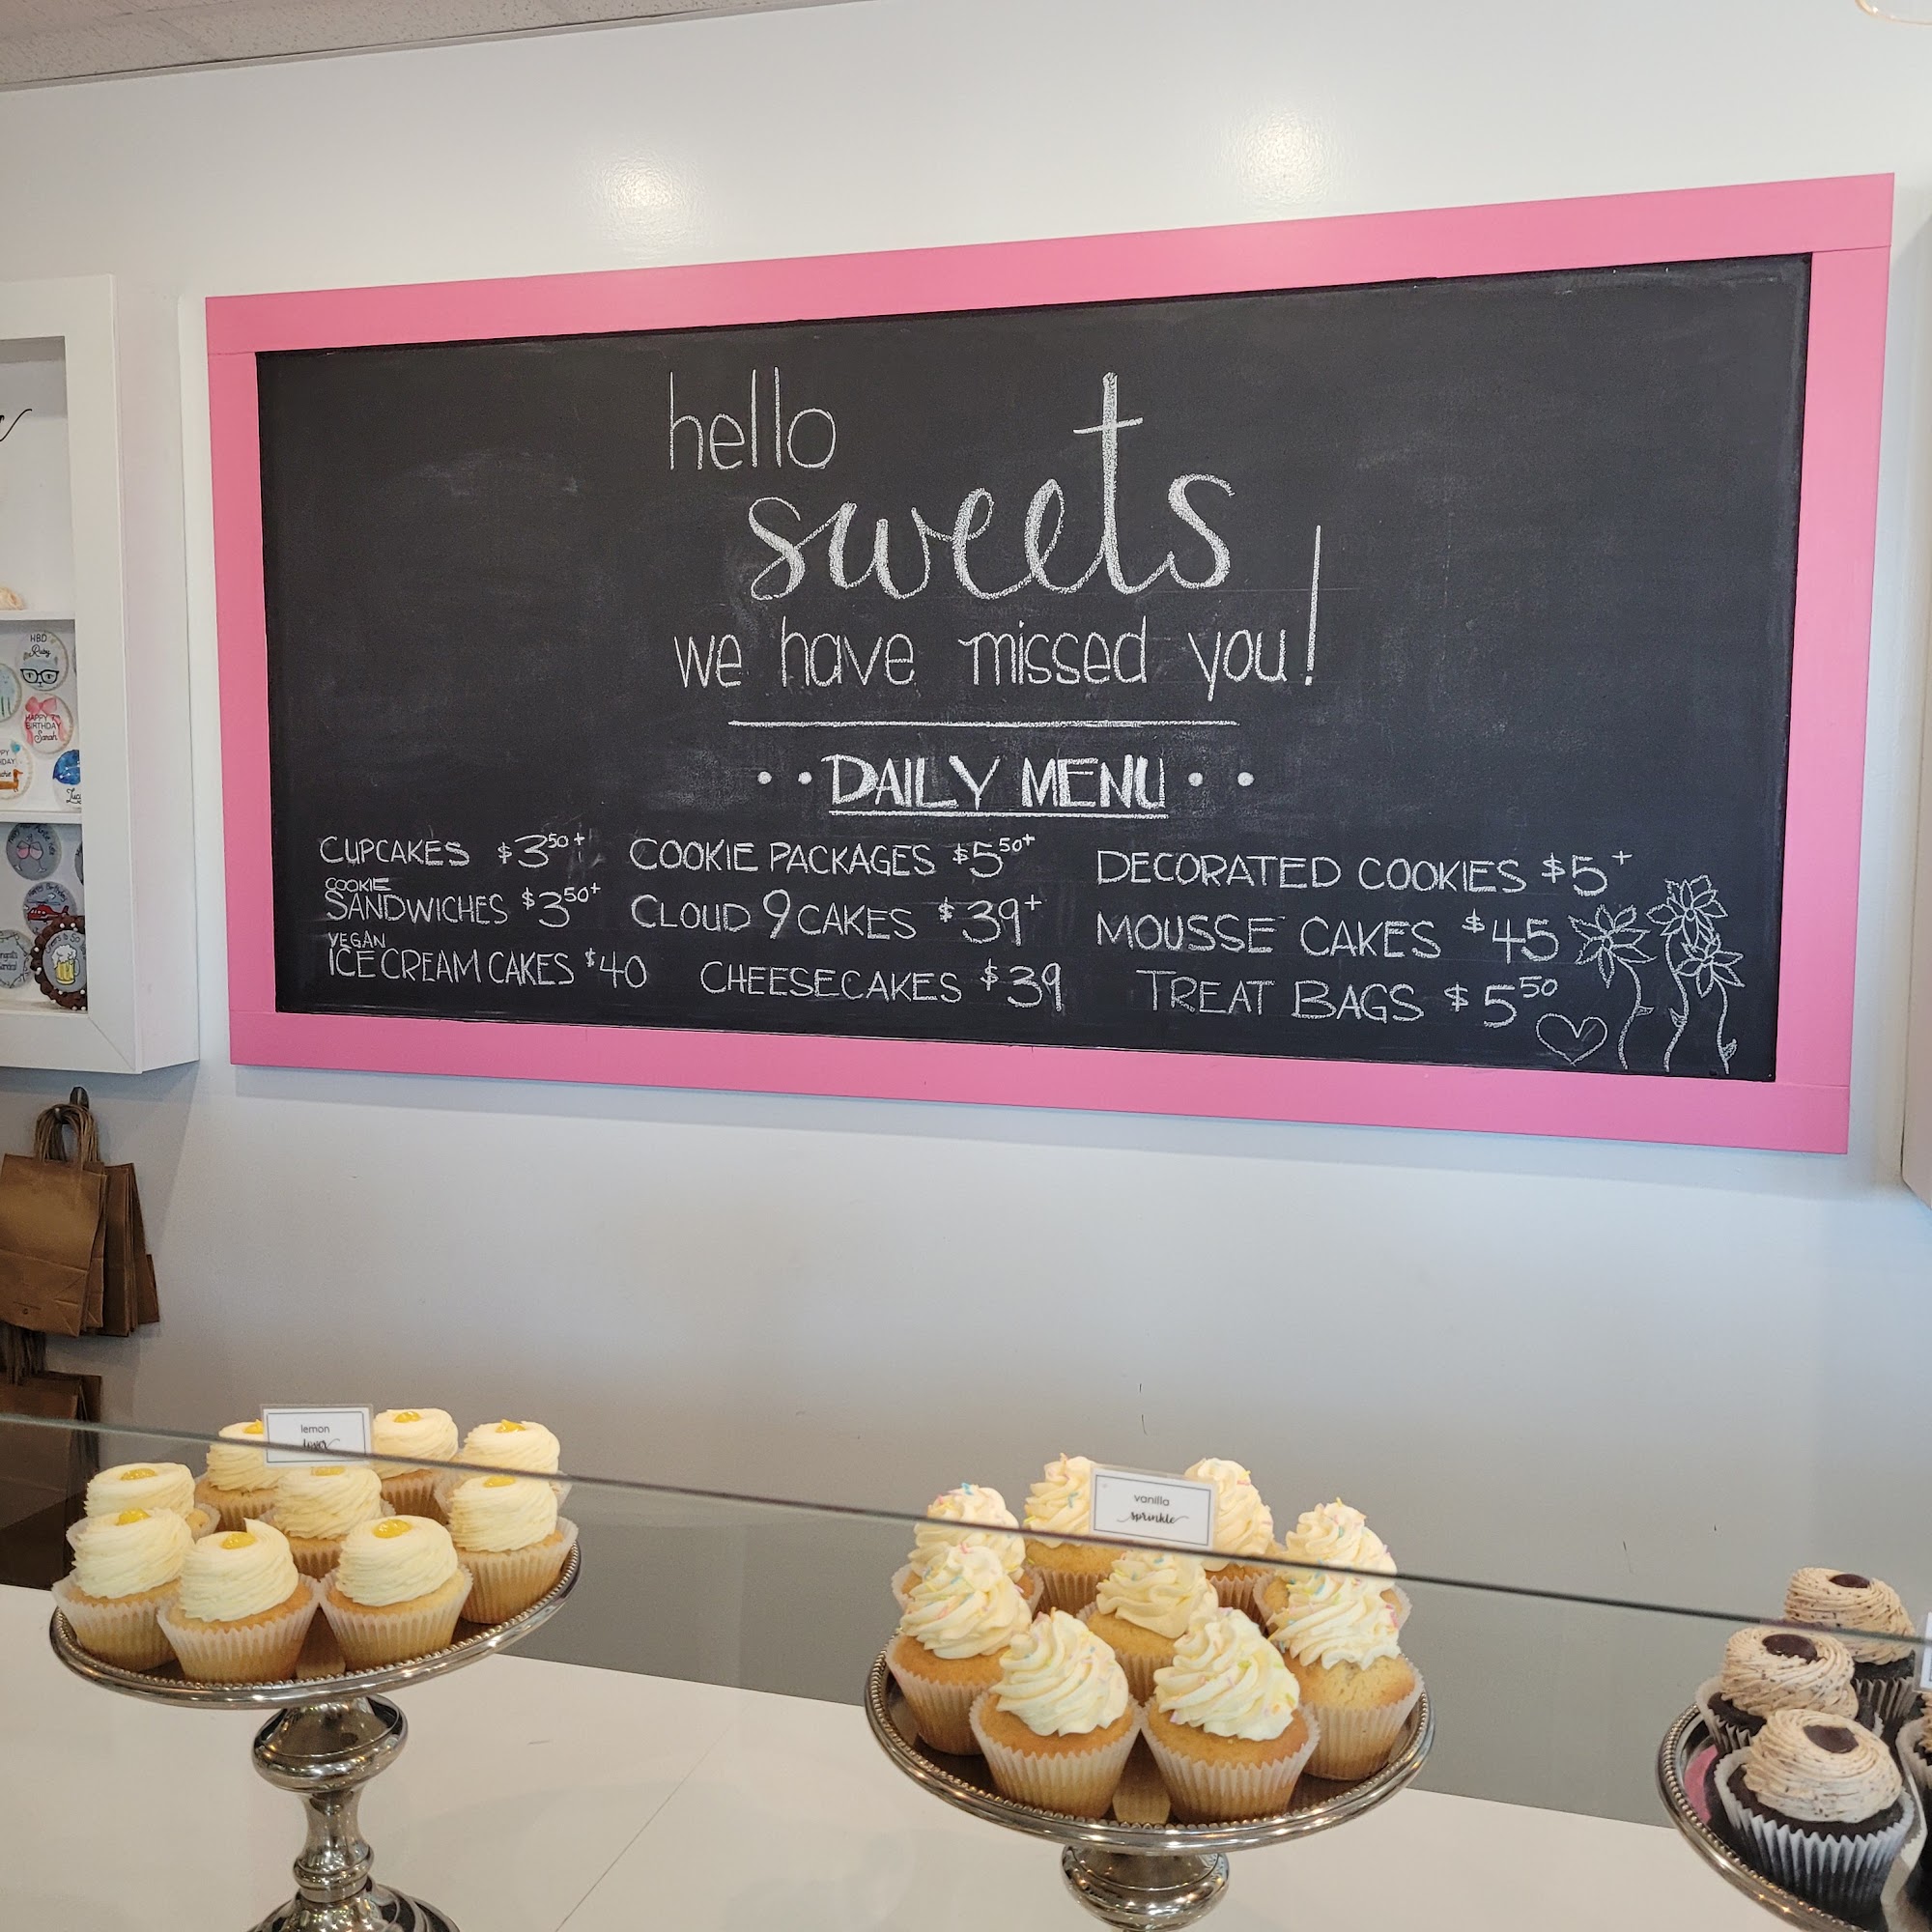 hello
sweets
we have missed you!
DAILY MENU
CUPCAKES $3⁵⁰⁺
COOKIE
SANDWICHES $3⁵⁰⁺
VEGAN
ICE CREAM CAKES $40
COOKIE PACKAGES $5⁵⁰⁺
CLOUD 9 CAKES $39⁺
CHEESECAKES $39
DECORATED COOKIES $5⁺
MOUSSE CAKES $45
TREAT BAGS $5⁵⁰
HBD
Ruby
HAPPY
BIRTHDAY
Sarah
lemon
lover
vanilla
sprinkle